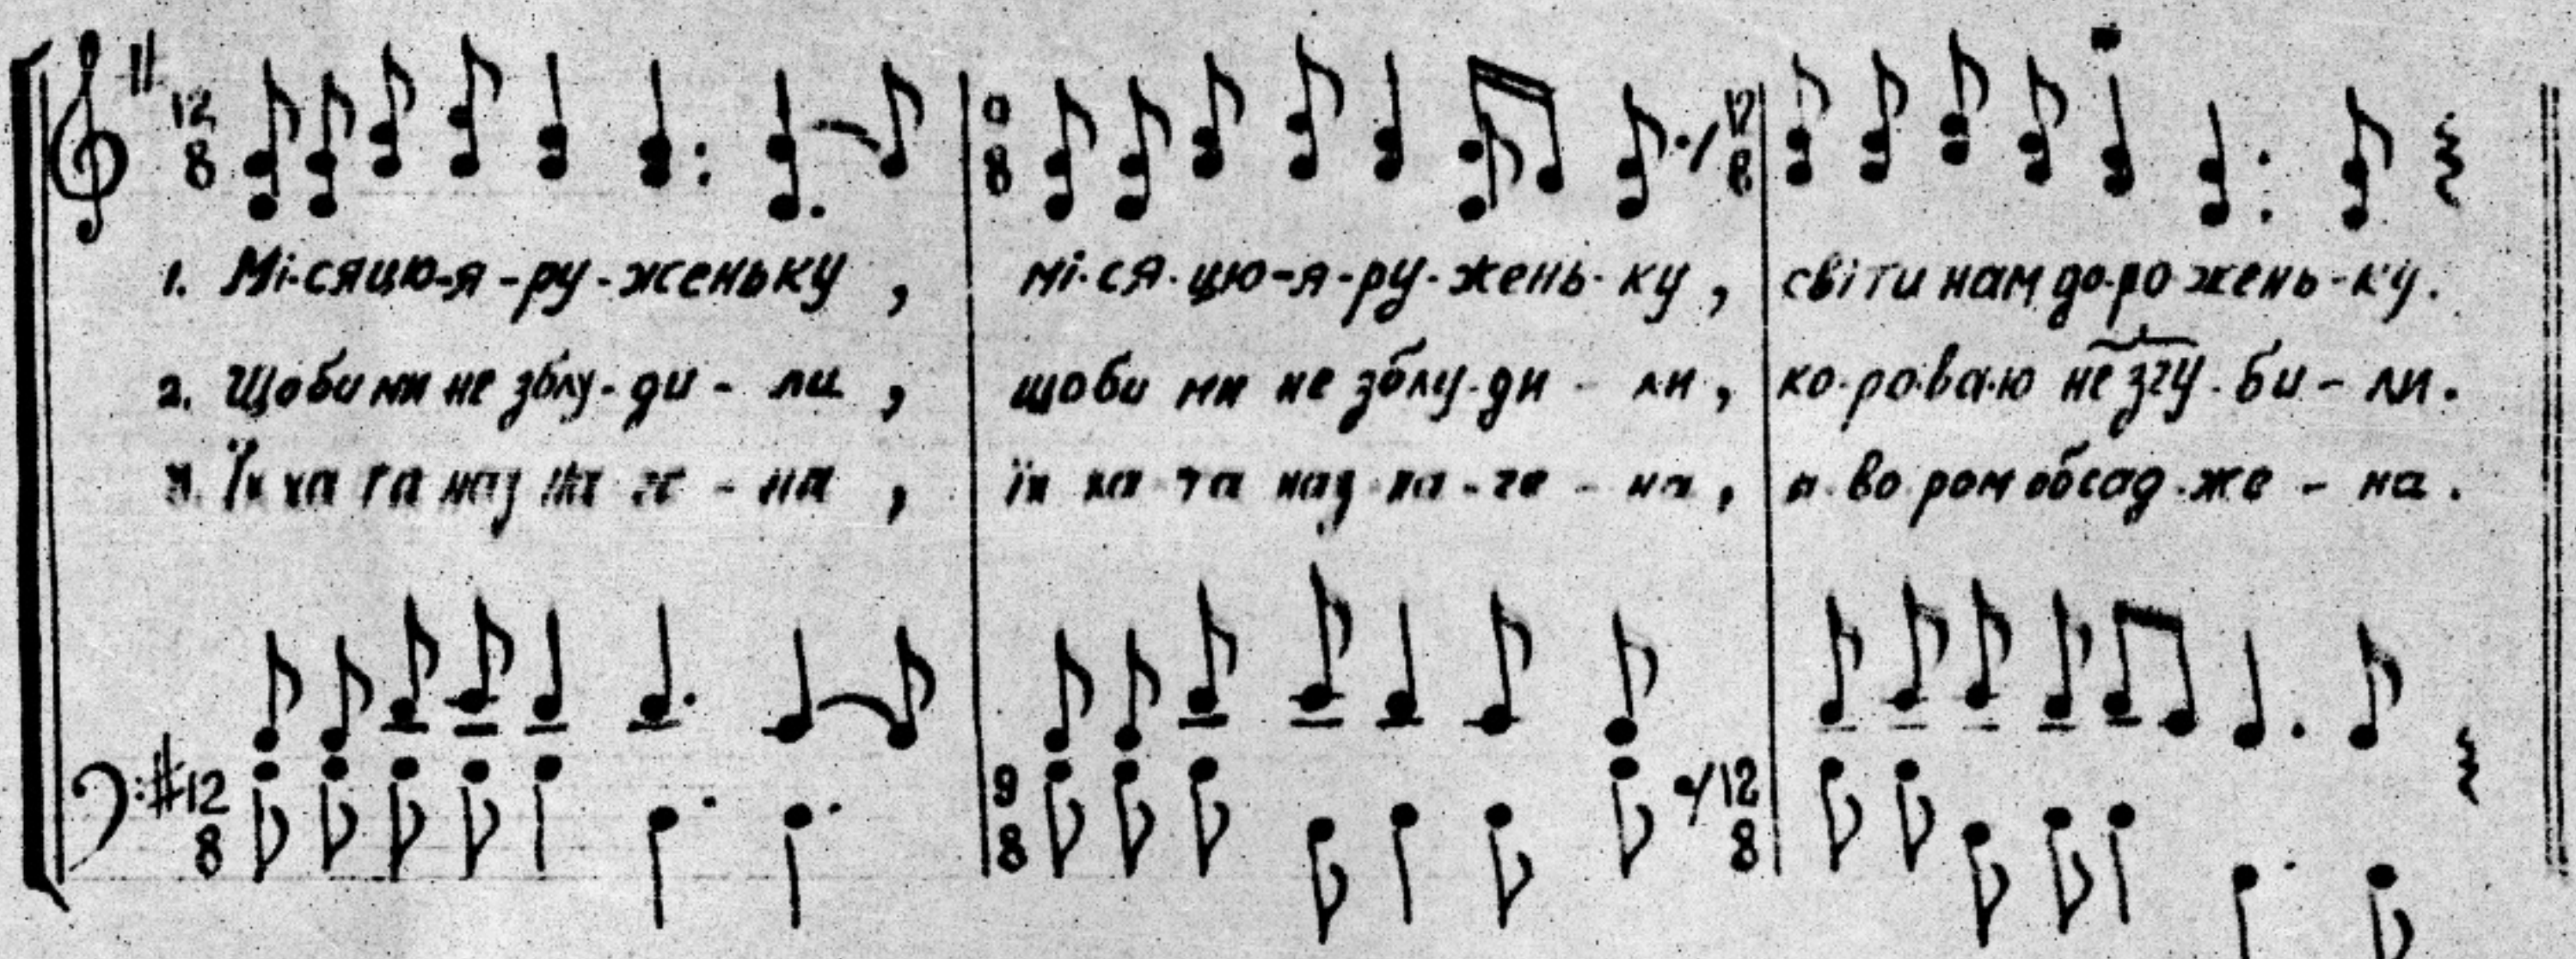 12 8 9 8 12 8
1. Мі-сяцю-я-ру-женьку, мі-ся-цю-я-ру-жень-ку, світи нам до-ро жень-ку.
2. Щоби ми не зблу-ди-ли, щоби ми не зблу-ди-ли, ко-ро-ва-ю не згу-би-ли.
Їх ха та на, їх ха-та над на, во ром обсад-же-на.
12 8 9 8 12 8